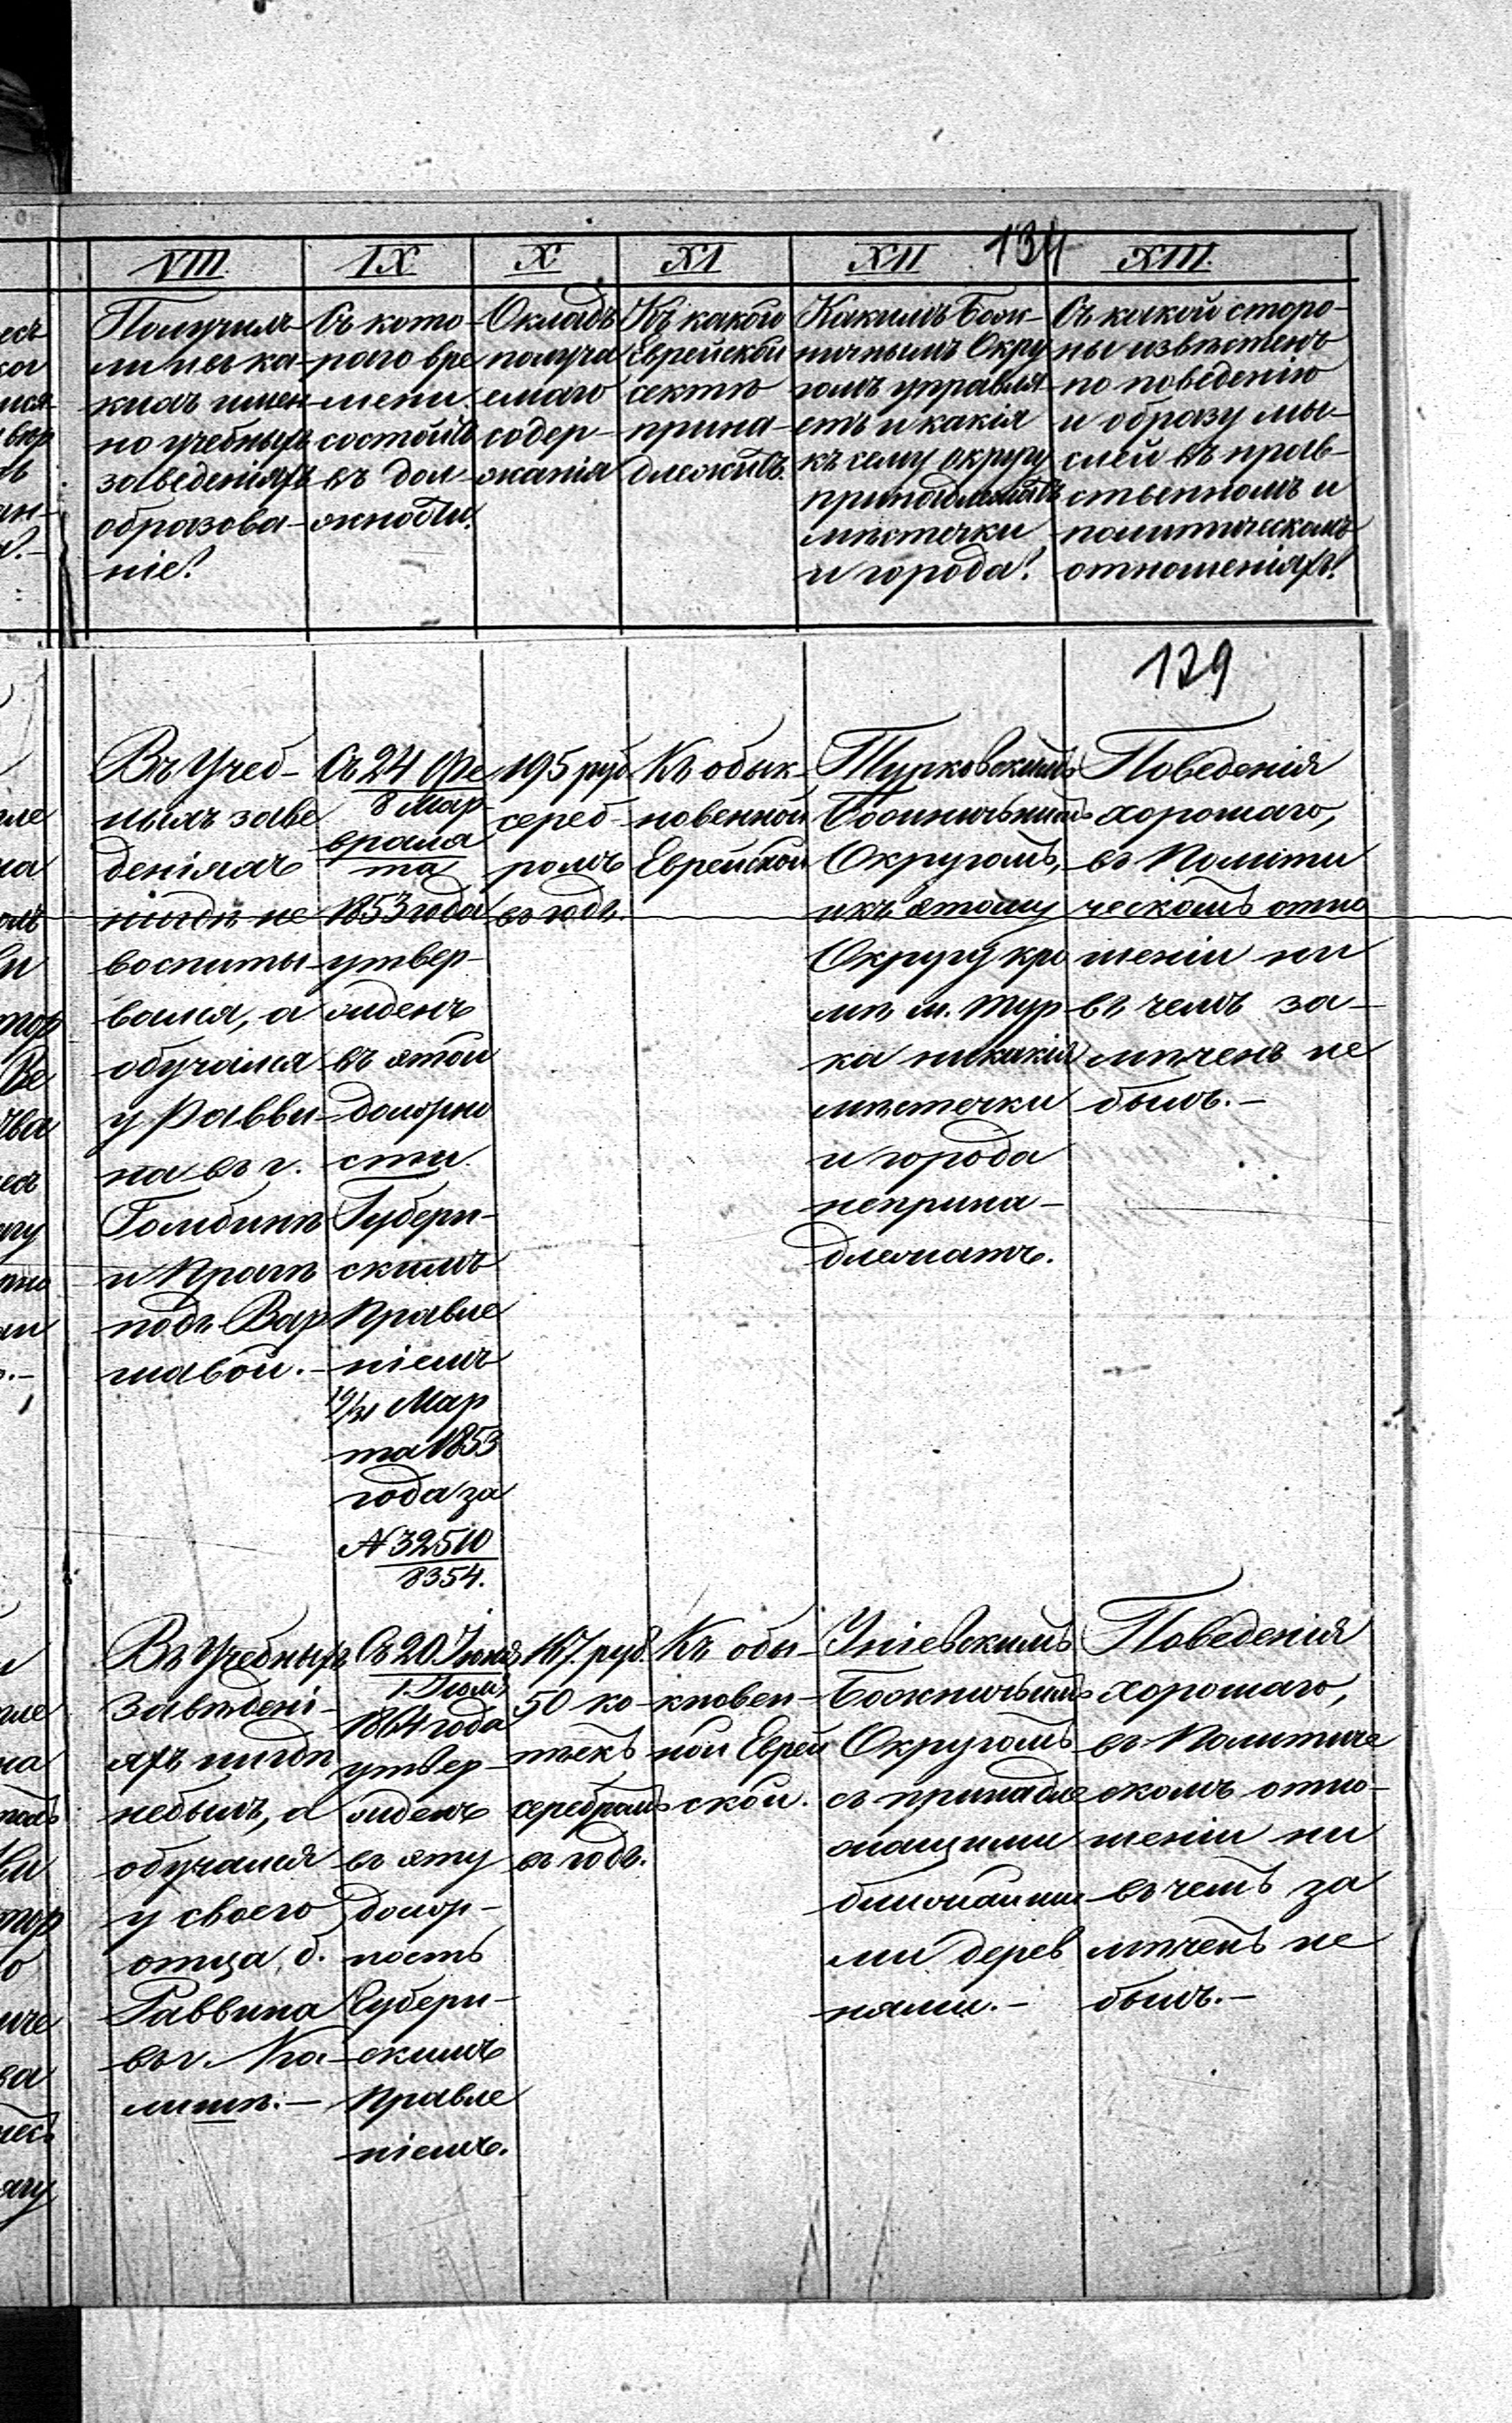 134
VIII
Получилъ
ли и въ ка-
кихъ имен-
но учебныхъ
заведеніяхъ
образова-
ніе?
IX
Съ кото-
раго вре
мени
состоитъ
въ дол-
жности?
X
Окладъ
получа
емаго
содер-
жанія
XI
Къ какой
Еврейской
сектѣ
прина-
длежитъ.
XII
Какимъ Бож-
ничнымъ Окру
гомъ управля-
етъ и какія
къ сему округу
принадлежатъ
мѣстечки
и города?
XIII
Съ какой сторо-
ны извѣстенъ
по поведенію
и образу мы-
слей въ нрав-
ственномъ и
политическомъ
отношеніяхъ?
129
Въ Учеб-
ныхъ заве
деніяхъ
нигдѣ не
воспиты-
вался, а
обучался
у Равви-
на въ г.
Гомбинѣ
и Прагѣ
подъ Вар
шавой.-
Съ 24 Фе
8 Мар
враля
та
1853 года
утвер-
жденъ
въ этой
должно
сти
Губерн-
скимъ
Правле
ніемъ
19/31 Мар
та 1853
года за
№ 32510
8354.
195 руб
сереб-
ромъ
въ годъ.
Къ обык-
новенной
Еврейской
Турковскимъ
Божничьнимъ
Округомъ,
и къ этому
Округу кро
мѣ м. Тур-
ка никакія
мѣстечки
и города
непрна-
длежатъ.
Поведенія
хорошаго,
въ Полити
ческомъ отно
шеніи ни
въ чемъ за-
мѣченъ не
былъ.-
Въ Учебныхъ
Заведені-
яхъ нигдѣ
небылъ, а
обучался
у своего
отца, б.
Раввина
въ г. Ка-
лишѣ.-
Съ 20 Іюня
1. Іюля
1864 года
утвер-
жденъ
въ эту
долж-
ность
Губерн-
скимъ
Правле
ніемъ.
167. руб.
50 ко-
пѣекъ
серебромъ
въ годъ.
Къ обы-
кновен-
ной Еврей
ской.
Уніевскимъ
Божничьимъ
Округомъ
съ принадле
жащими
ближайши
ми дерев
нями.-
Поведенія
хорошаго,
въ Политиче
скомъ отно-
шеніи ни
въ чемъ за
мѣченъ не
былъ.-